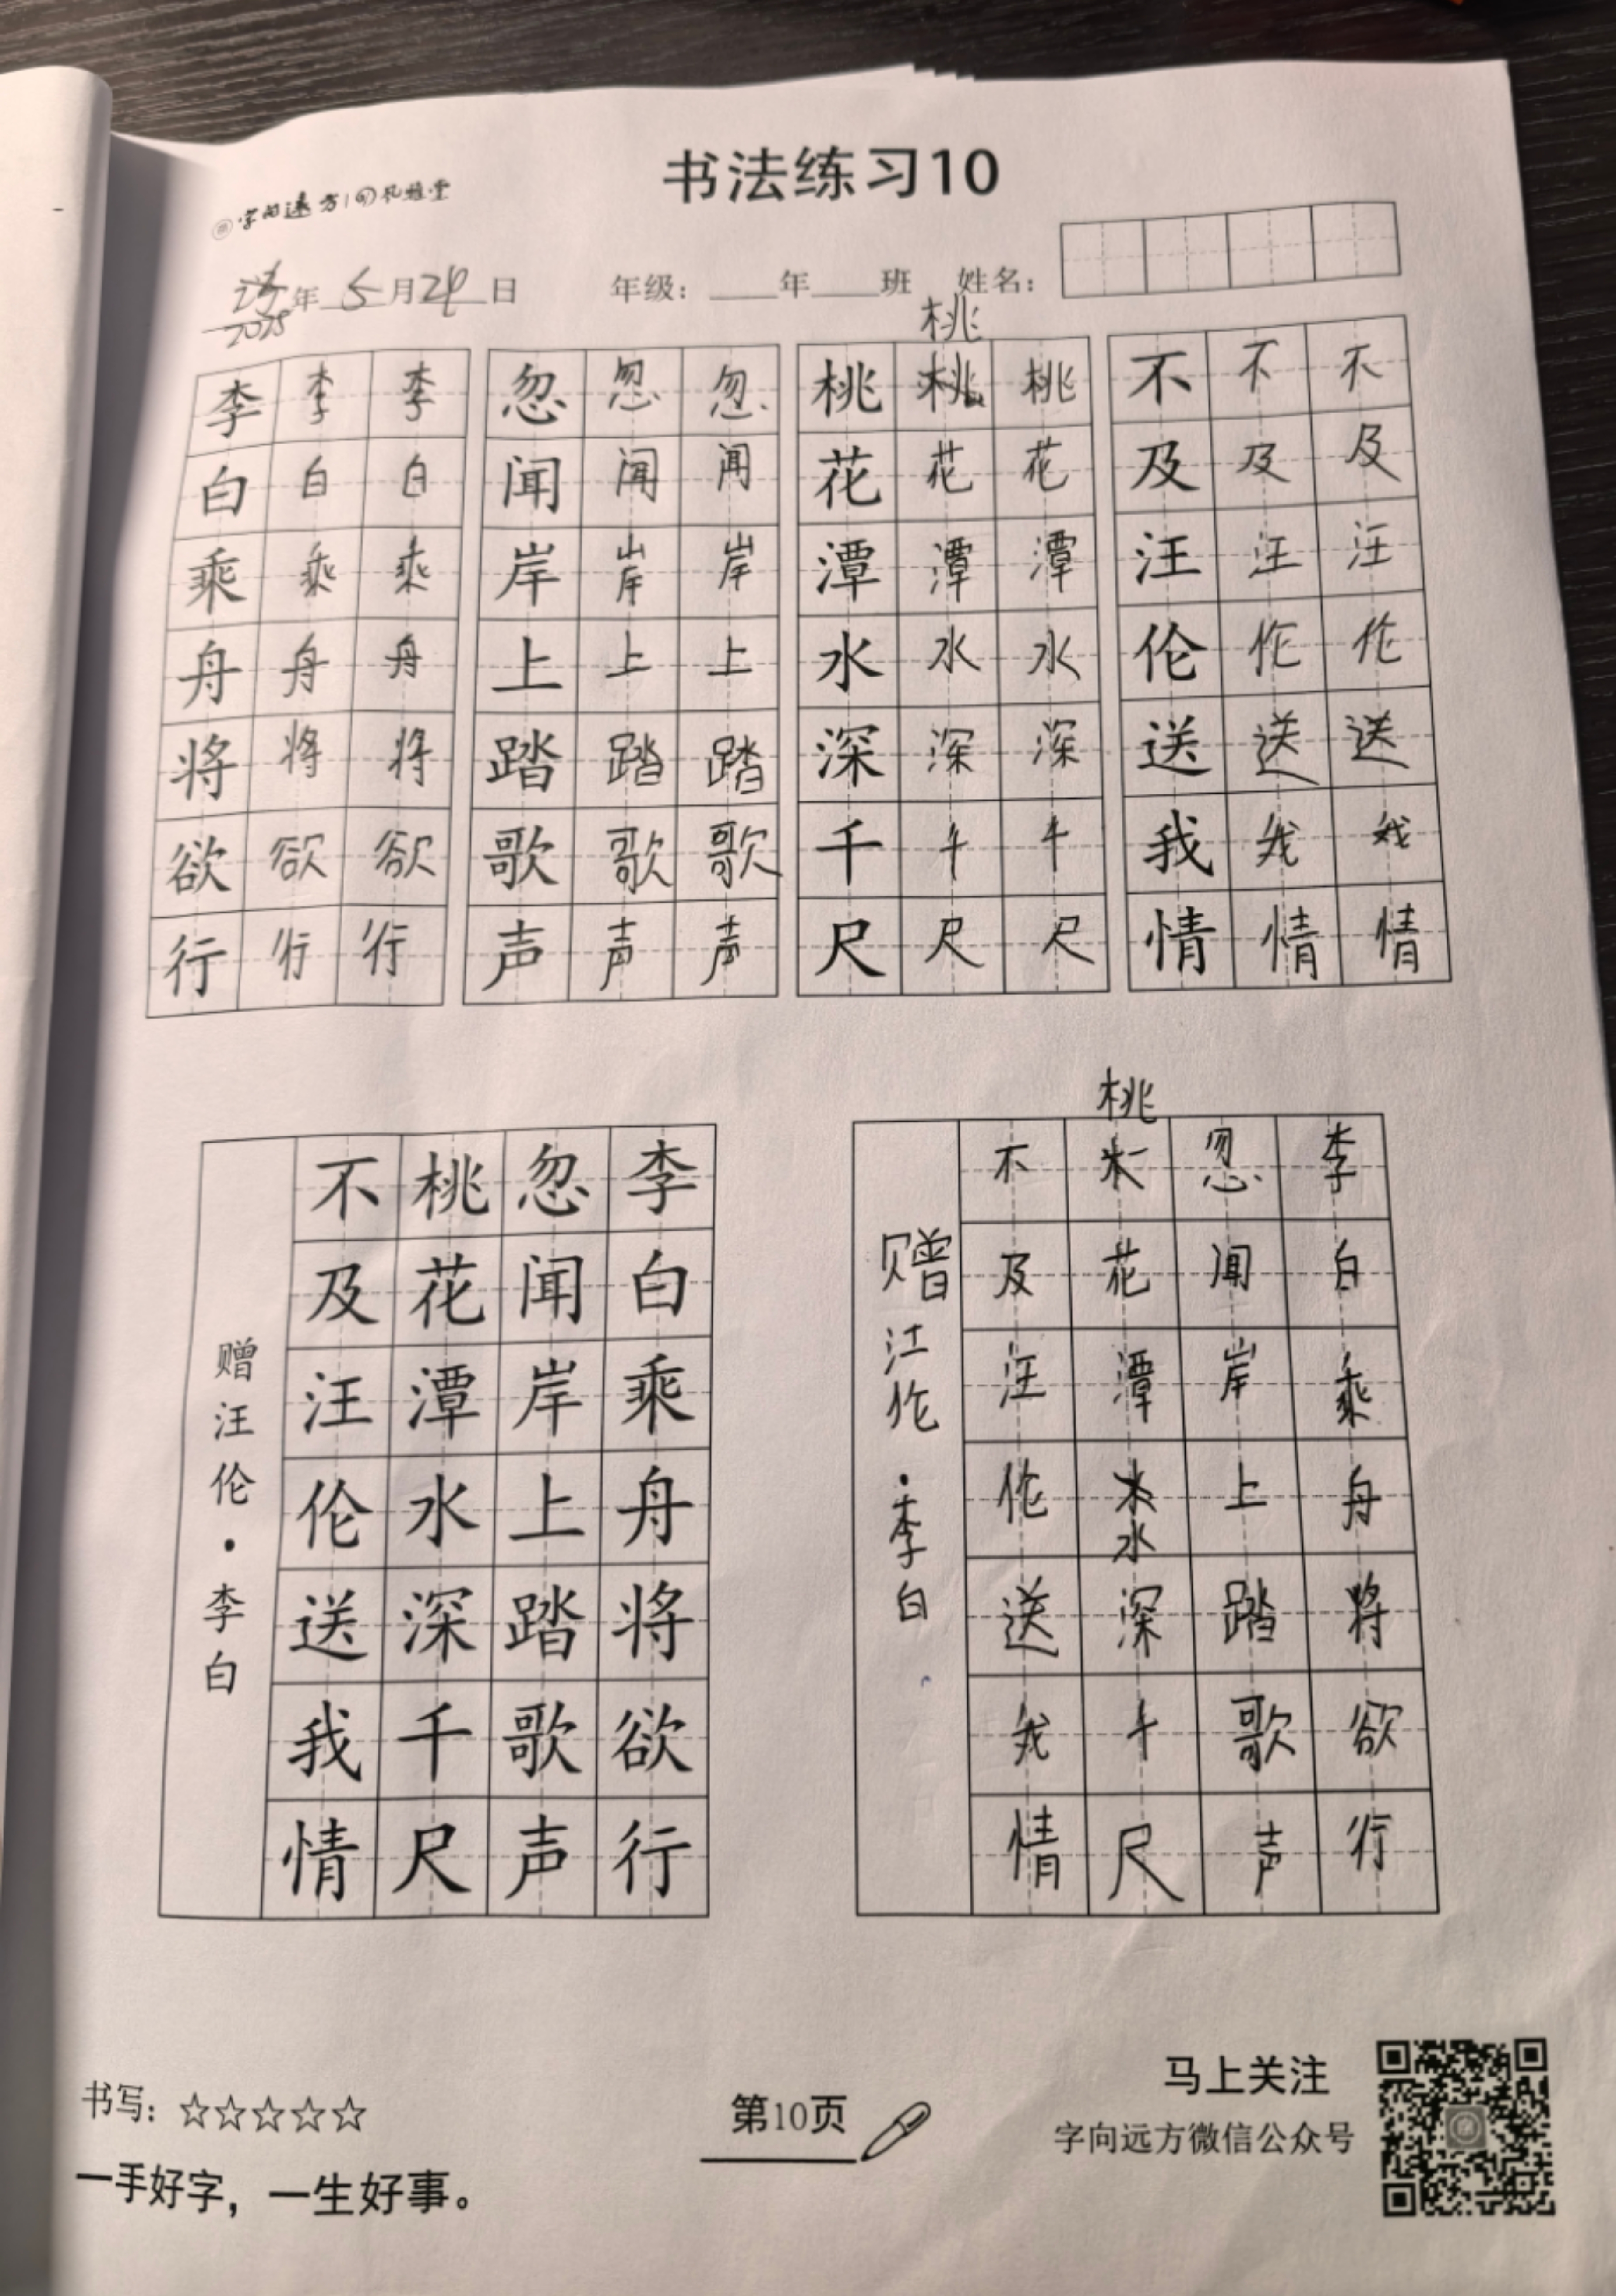 书法练习10
字向远方
2025年5月29日 年级：____年____班 姓名：
桃
李李李 忽忽忽 桃桃桃 不不不
白白白 闻闻闻 花花花 及及及
乘乘乘 岸岸岸 潭潭潭 汪汪汪
舟舟舟 上上上 水水水 伦伦伦
将将将 踏踏踏 深深深 送送送
欲欲欲 歌歌歌 千千千 我我我
行行行 声声声 尺尺尺 情情情
李白乘舟将欲行
忽闻岸上踏歌声
桃花潭水深千尺
不及汪伦送我情
赠汪伦·李白
李白乘舟将欲行
忽闻岸上踏歌声
桃花潭水深千尺
不及汪伦送我情
赠江伦·李白
书写：☆☆☆☆☆
一手好字，一生好事。
第10页
马上关注
字向远方微信公众号